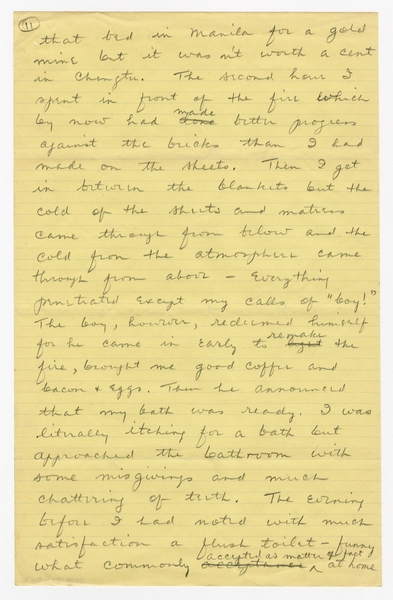 11
that bed in Manila for a gold
mine but it wasn't worth a cent
in Chengtu. The second hour I
spent in front of the fire which
by now had done made better progress
against the bricks than I had
made on the sheets. Then I got
in between the blankets but the
cold of the sheets and matress
came through from below and the
cold from the atmosphere came
through from above – everything
penetrated except my calls of "boy!"
The boy, however, redeemed himself
for he came in early to light remake the
fire, brought me good coffee and
bacon & eggs. Then he announced
that my bath was ready. I was
literally itching for a bath but
approached the bathroom with
some misgivings and much
chattering of teeth. The evening
before I had noted with much
satisfaction a flush toilet – funny
what commonly acceptance accepted as matter of fact at home